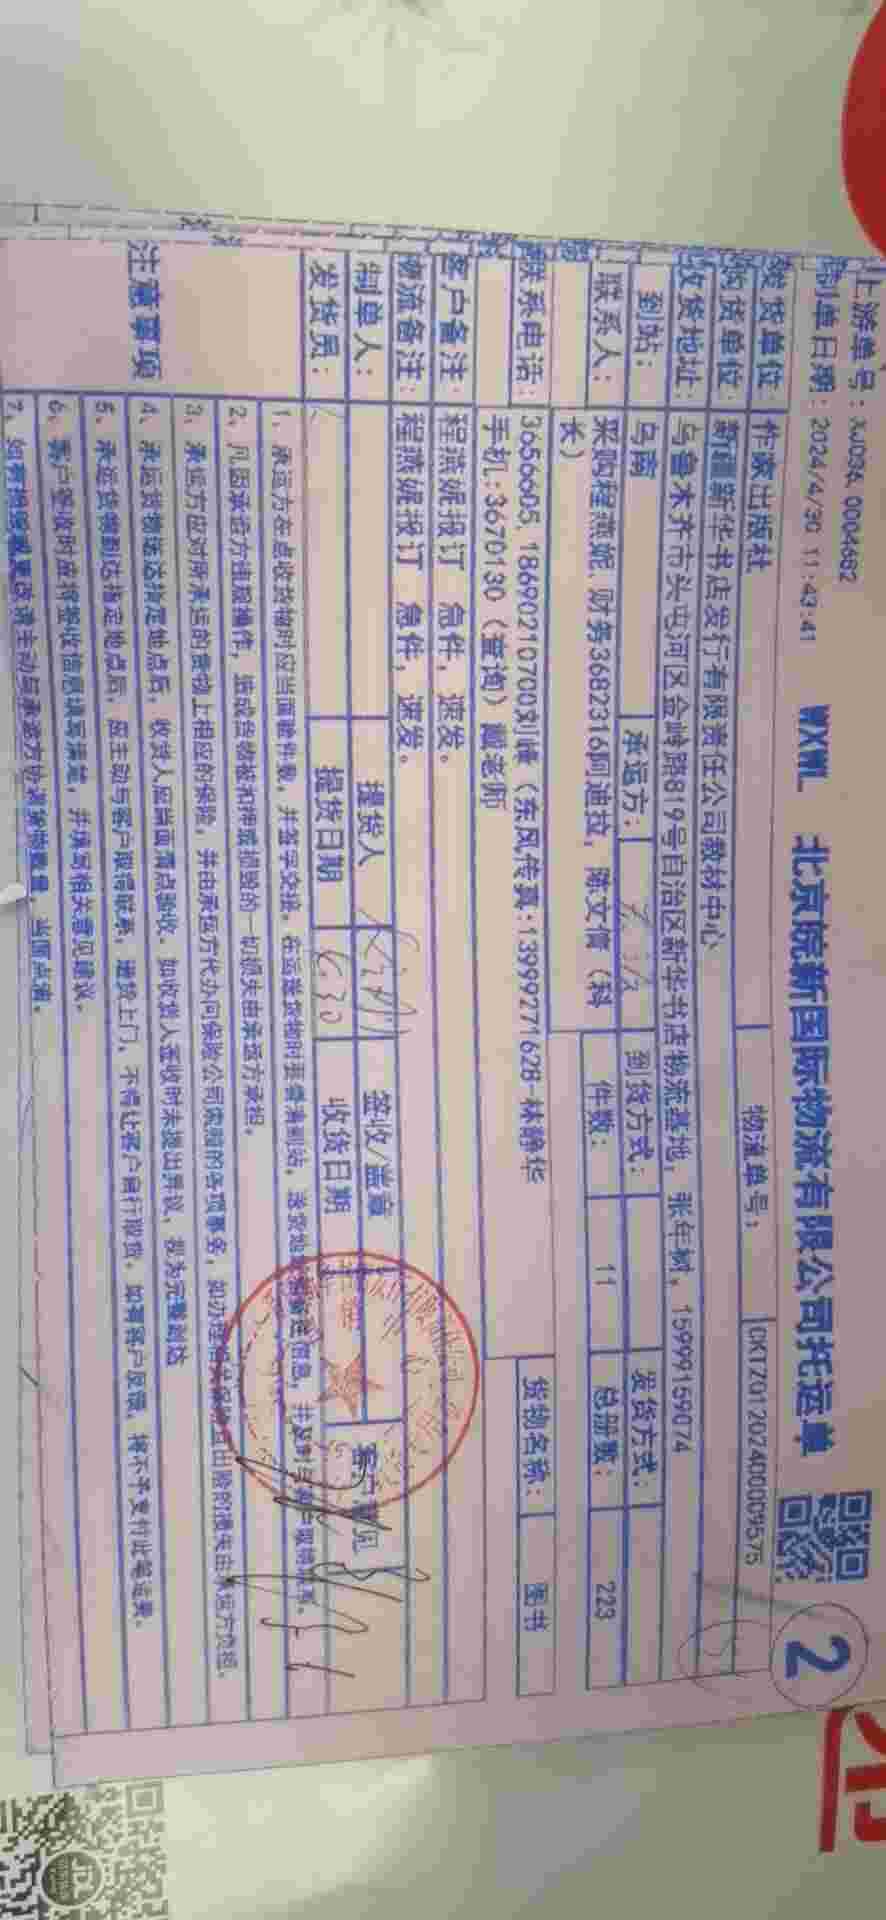 上游单号：XJD36 0004682
制单日期：2024/4/30 11:43:41
WXWL 北京皖新国际物流有限公司托运单
2
发货单位： 作家出版社 物流单号： CKTZ0120240009575
收货单位： 新疆新华书店发行有限责任公司教材中心
收货地址： 乌鲁木齐市头屯河区金岭路819号自治区新华书店物流基地，张年树，15999159074
到站： 乌南 承运方： 到货方式： 发货方式：
联系人： 采购程燕妮，财务3682316阿迪拉，陈文倩（科长） 件数： 11 总册数： 223
联系电话： 3656605，18690210700刘峰（东风传真:13999271628-林静华
手机:3670130（查询）戴老师
货物名称： 图书
客户备注： 程燕妮报订 急件，速发。
物流备注： 程燕妮报订 急件，速发。
制单人： 提货人 签收/盖章 客户意见
发货员： 提货日期 6.30 收货日期
注意事项
1、承运方在点收货物时应当面验件数，并签字交接。在运送货物时要看清到站、
2、凡因承运方违规操作，造成货物被扣押或损毁的一切损失由承运方承担。
3、承运方应对所承运的货物上相应的保险，并由承运方代办向保险公司索赔的各项事务，
4、承运货物运送指定地点后，收货人应当面清点验收，如收货人签收时未提出异议，视为完整到达
5、承运货物到达指定地点后，应主动与客户取得联系，送货上门，不得让客户自行提货，如有客户反馈，将不予支付此笔运费。
6、客户签收时应将签收信息填写清楚，并填写相关意见建议。
7、